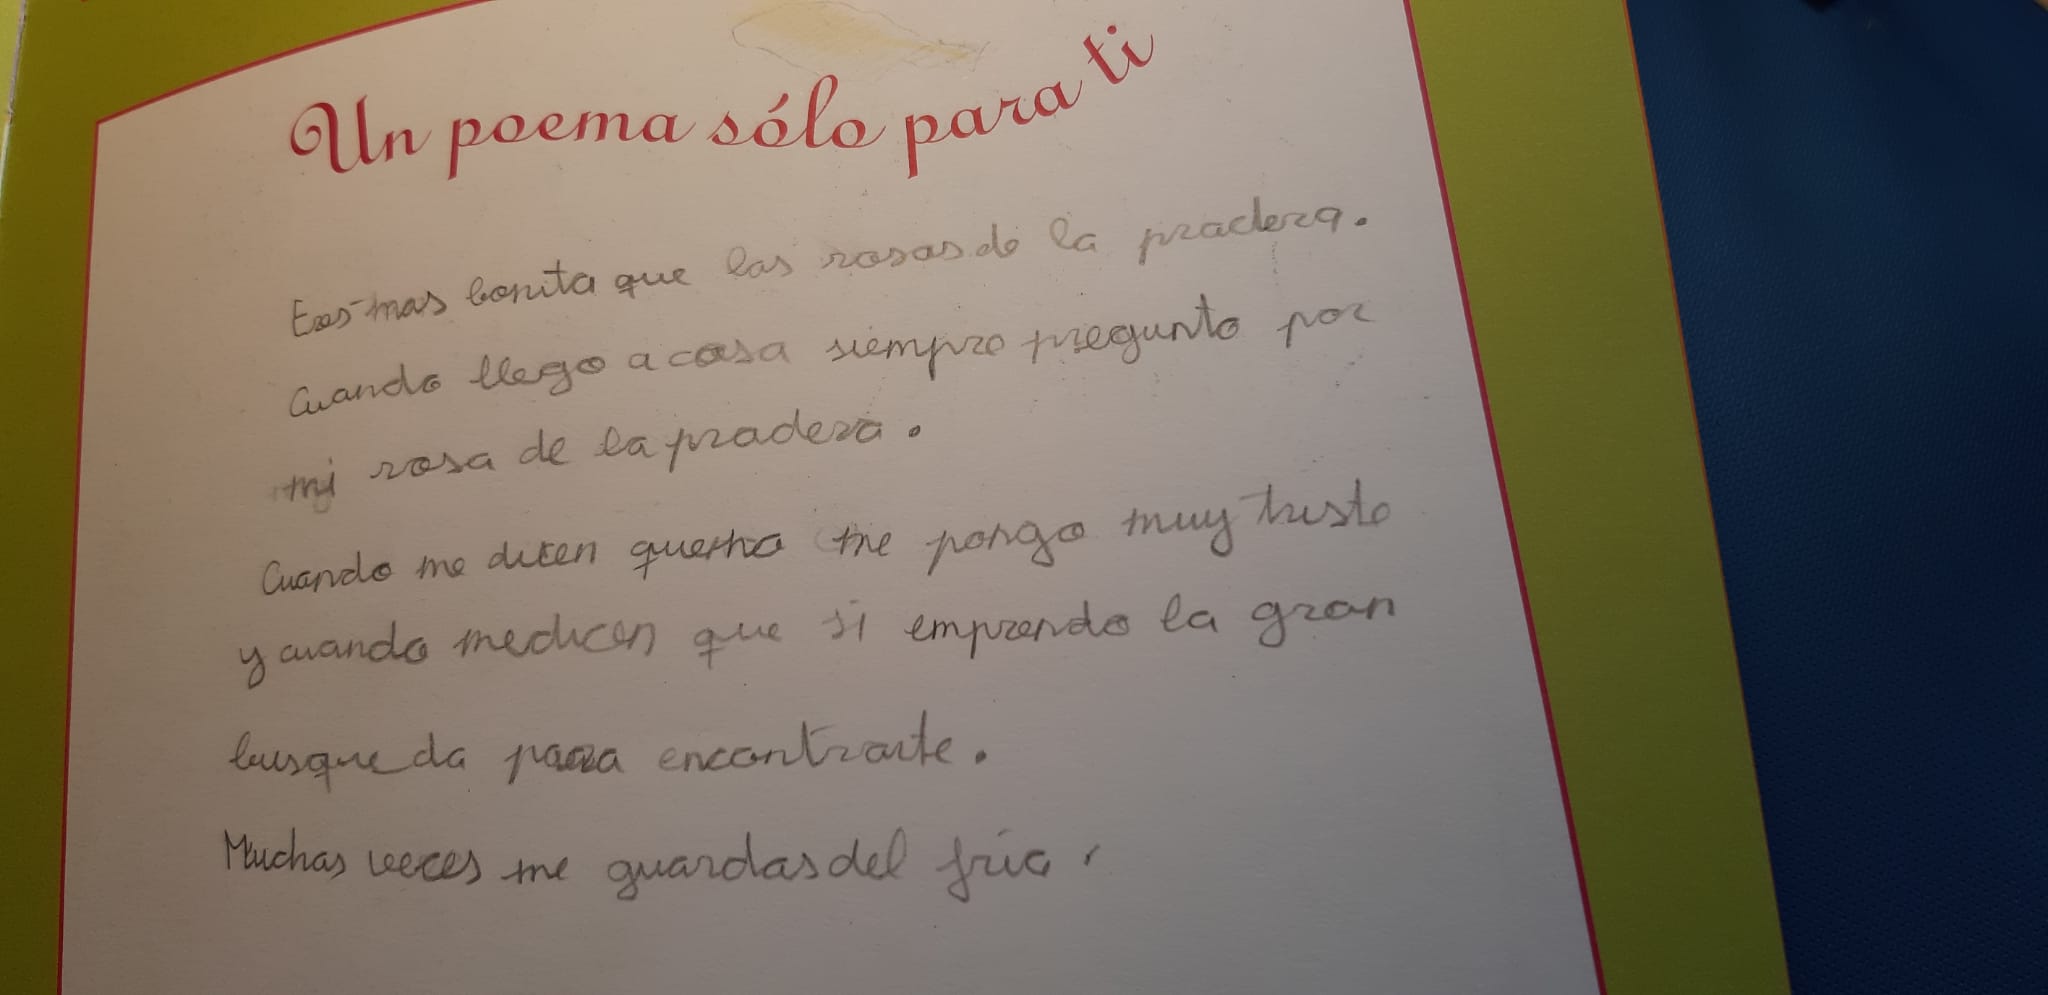 Un poema sólo para ti
Eres mas bonita que las rosas de la pradera.
Cuando llego a casa siempre pregunto por
mi rosa de la pradera.
Cuando me dicen que no me pongo muy triste
y cuando me dicen que si emprendo la gran
busqueda para encontrarte.
Muchas veces me guardas del frío,